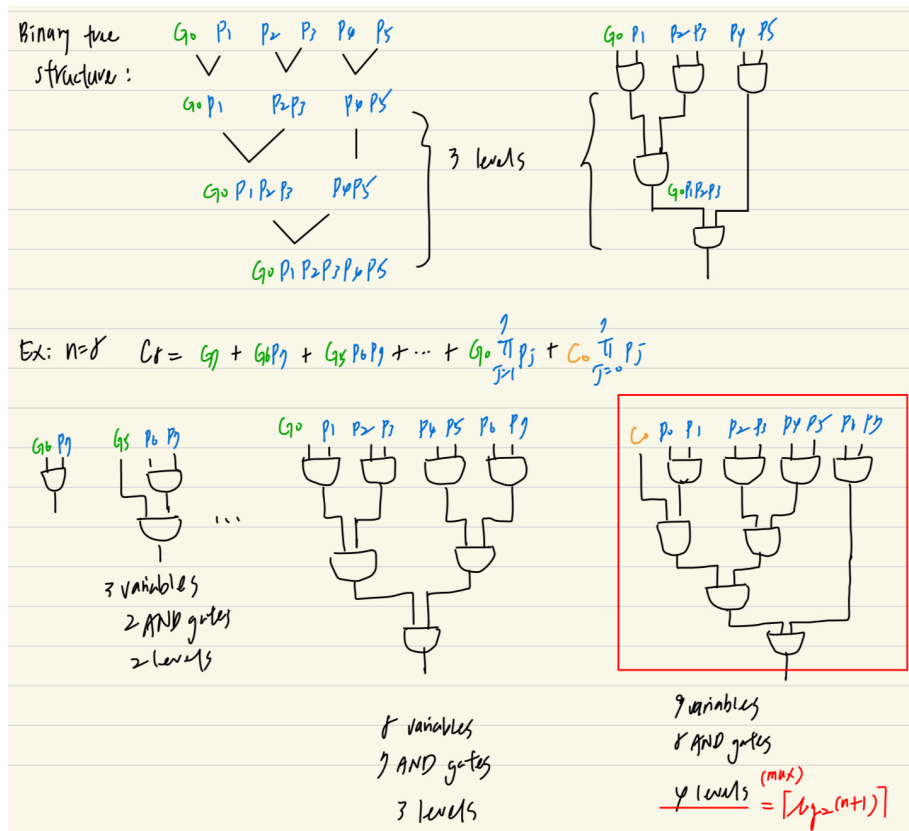 Binary tree structure:
G₀ P₁ P₂ P₃ P₄ P₅
G₀P₁ P₂P₃ P₄P₅
G₀P₁P₂P₃ P₄P₅
G₀P₁P₂P₃P₄P₅
3 levels
G₀ P₁ P₂ P₃ P₄ P₅
G₀P₁P₂P₃
Ex: n=8 C₈ = G₇ + G₆P₇ + G₅P₆P₇ + ⋯ + G₀ ∏_{j=1}^{7} Pj + C₀ ∏_{j=0}^{7} Pj
G₆ P₇
G₅ P₆ P₇
...
3 variables
2 AND gates
2 levels
G₀ P₁ P₂ P₃ P₄ P₅ P₆ P₇
8 variables
7 AND gates
3 levels
C₀ P₀ P₁ P₂ P₃ P₄ P₅ P₆ P₇
9 variables
8 AND gates
4 levels (max) = ⌈log₂(n+1)⌉